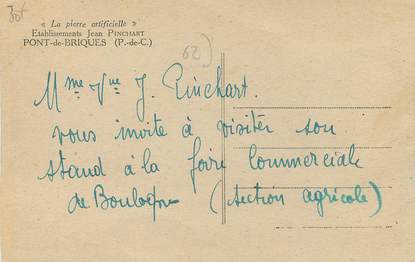 « La pierre artificielle »
Etablissements Jean PINCHART
PONT-de-BRIQUES (P.-de-C.)
62)
Mme Vve J. Pinchart.
vous invite à visiter son
stand à la foire Commerciale
de Boulogne (section agricole)